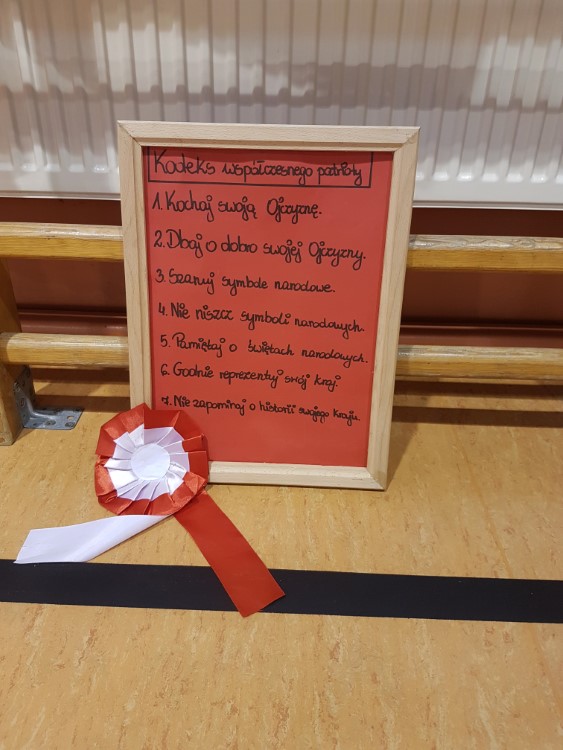 Kodeks współczesnego patrioty
1. Kochaj swoją Ojczyznę.
2. Dbaj o dobro swojej Ojczyzny.
3. Szanuj symbole narodowe.
4. Nie niszcz symboli narodowych.
5. Pamiętaj o świętach narodowych.
6. Godnie reprezentuj swój kraj.
7. Nie zapominaj o historii swojego kraju.